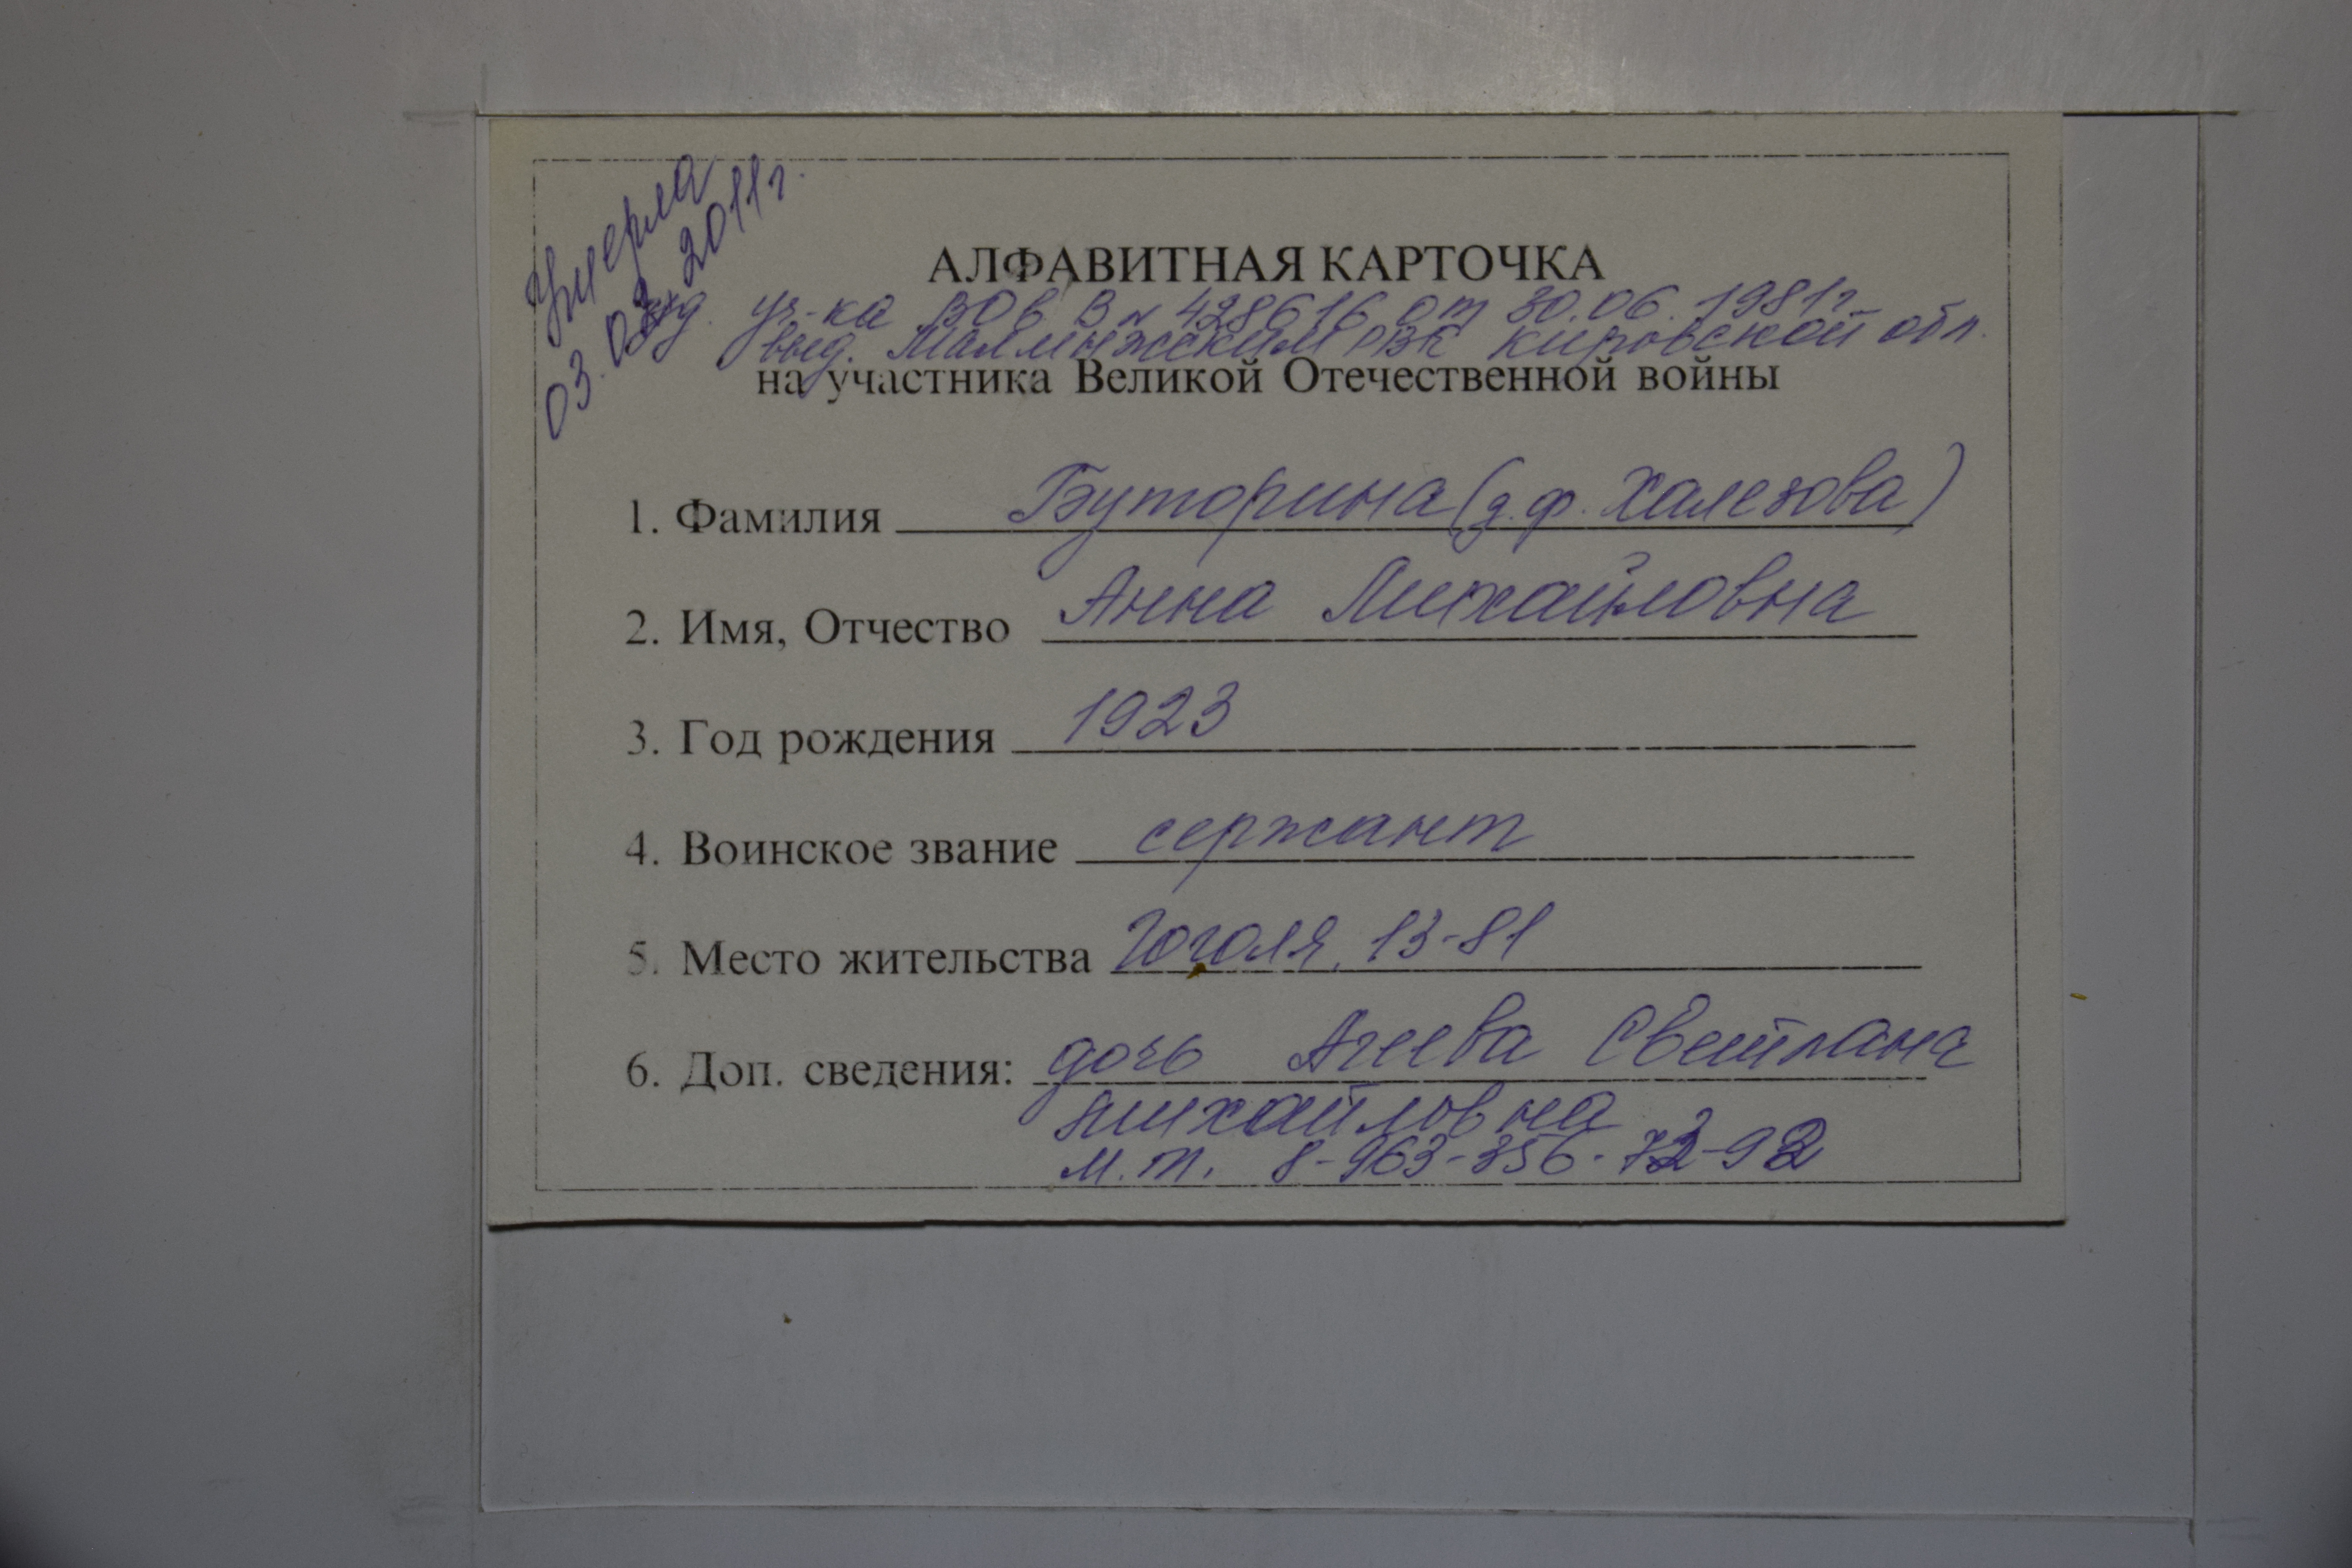 Умерла
03.03.2011г.
АЛФАВИТНАЯ КАРТОЧКА
уд. уч-ка ВОВ В № 428616 от 30.06.1981г.
выд. Малмыжским РВК Кировской обл.
на участника Великой Отечественной войны
1. Фамилия Буторина (д.ф. Халезова)
2. Имя, Отчество Анна Михайловна
3. Год рождения 1923
4. Воинское звание сержант
5. Место жительства Гоголя, 13-81
6. Доп. сведения: дочь Агеева Светлана
Михайловна
м.т. 8-963-356-72-92